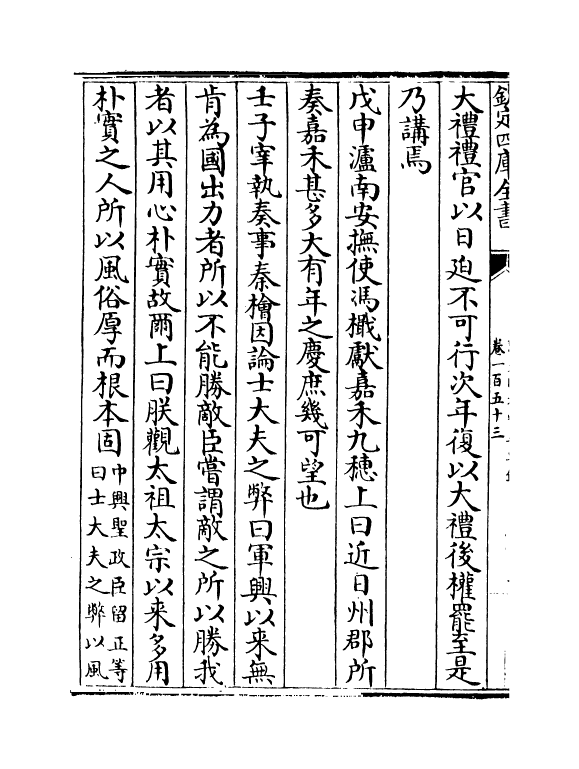 欽定四庫全書
卷一百五十三
大禮禮官以日迫不可行次年復以大禮後權罷至是
乃講焉
戊申瀘南安撫使馮檝獻嘉禾九穗上曰近日州郡所
奏嘉禾甚多大有年之慶庶幾可望也
壬子宰執奏事秦檜因論士大夫之弊曰軍興以来無
肯為國出力者所以不能勝敵臣嘗謂敵之所以勝我
者以其用心朴實故爾上曰朕觀太祖太宗以来多用
朴實之人所以風俗厚而根本固
中興聖政臣留正等
曰士大夫之弊以風